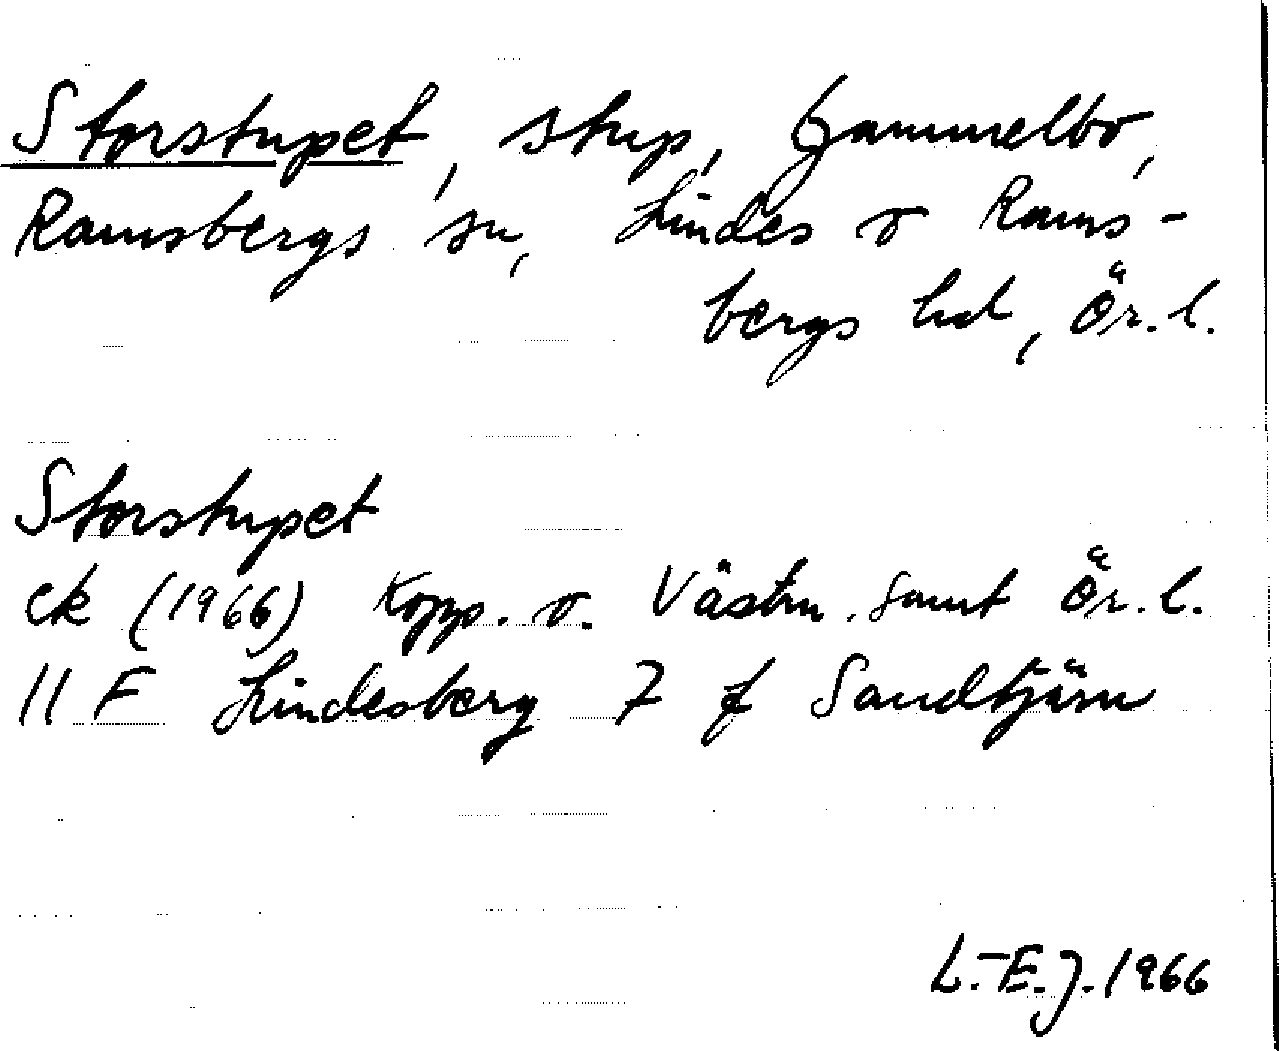 Storstupet, stup, Gammelbo,
Ramsbergs sn, Lindes o Rams-
bergs hd, Ör. l.
Storstupet
ek (1966) Kopp. o. Västm. samt Ör. l.
11 F Lindesberg 7 f Sandtjärn
L.-E. J. 1966